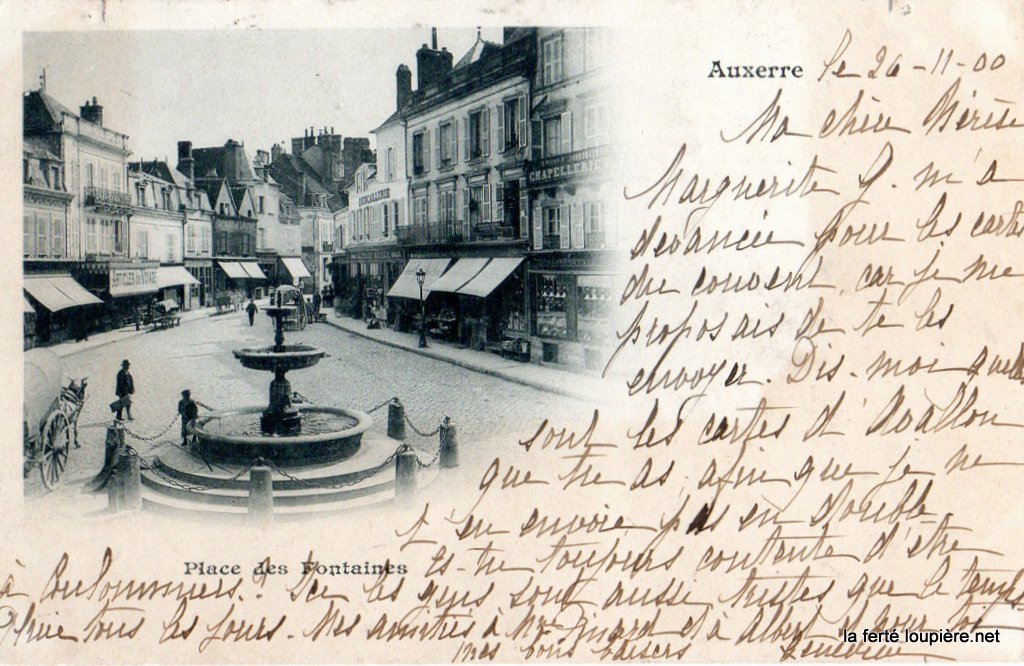 Auxerre le 26-11-00
Ma chère Thérèse
Marguerite G. m'a
devancée pour les cartes
du couvent, car je me
proposais de te les
envoyer. Dis-moi quelles
sont les cartes d'Avallon
que tu as, afin que je ne
t'en envoie pas en double
Es-tu toujours contente d'être
à Coulommiers? Ici les gens sont aussi tristes que le temps
pluie tous les jours. Mes amitiés à Mme et à Albert pour toi
mes bons baisers
Geneviève
CHAPELLERIE
ARTICLES DE VOYAGE
Place des Fontaines
la ferté loupière.net